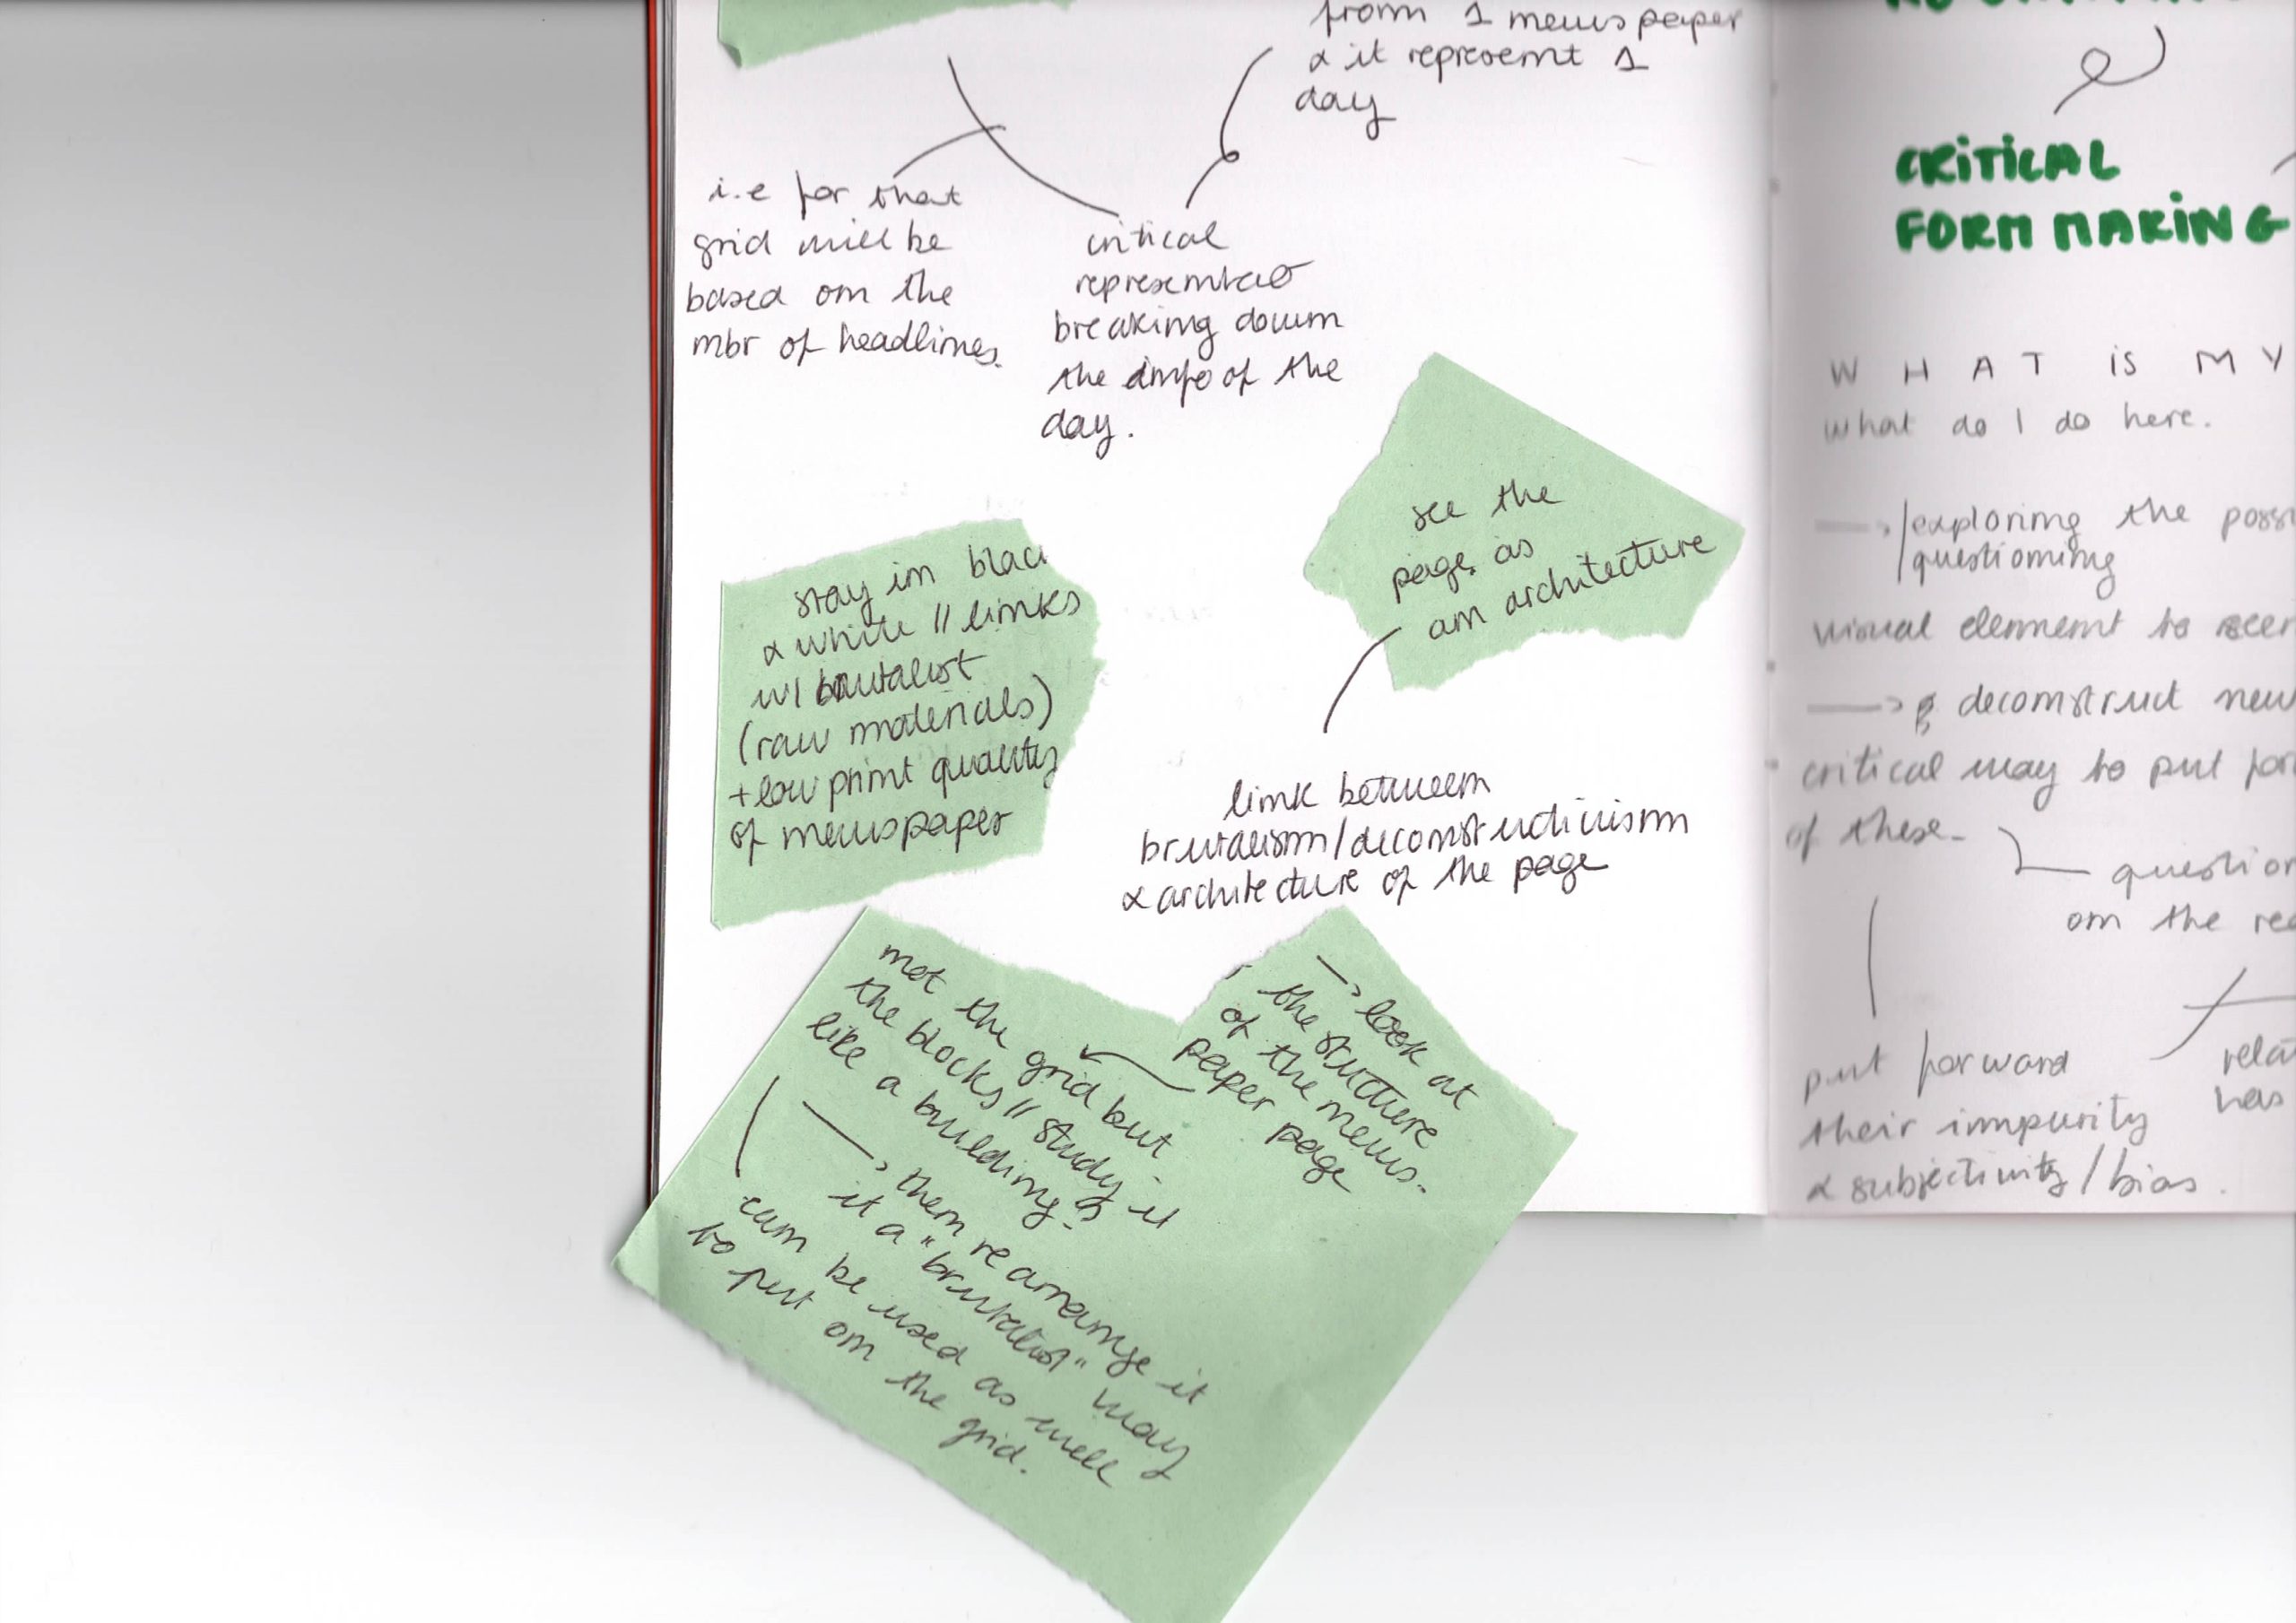 from 1 newspaper
& it represent 1
day
i.e for that
grid will be
based on the
nbr of headlines.
critical
representa°
breaking down
the info of the
day.
see the
page as
an architecture
stay in blac
& white // links
w/ brutalist
(raw materials)
+ low print quality
of newspaper
link between
brutalism/deconstructivism
& architecture of the page
→ look at
the structure
of the news-
paper page
not the grid but
the blocks // study it
like a building.
→ then rearrange it
it a "brutalist" way
can be used as well
to put on the grid.
CRiTiCAL
FORM MAKiNG
WHAT iS MY
what do I do here.
→ exploring the possi
questioning
visual element to
→ deconstruct new
critical way to put for
of these.
question
on the rea
put forward
their impurity
& subjectivity / bias.
rela
has